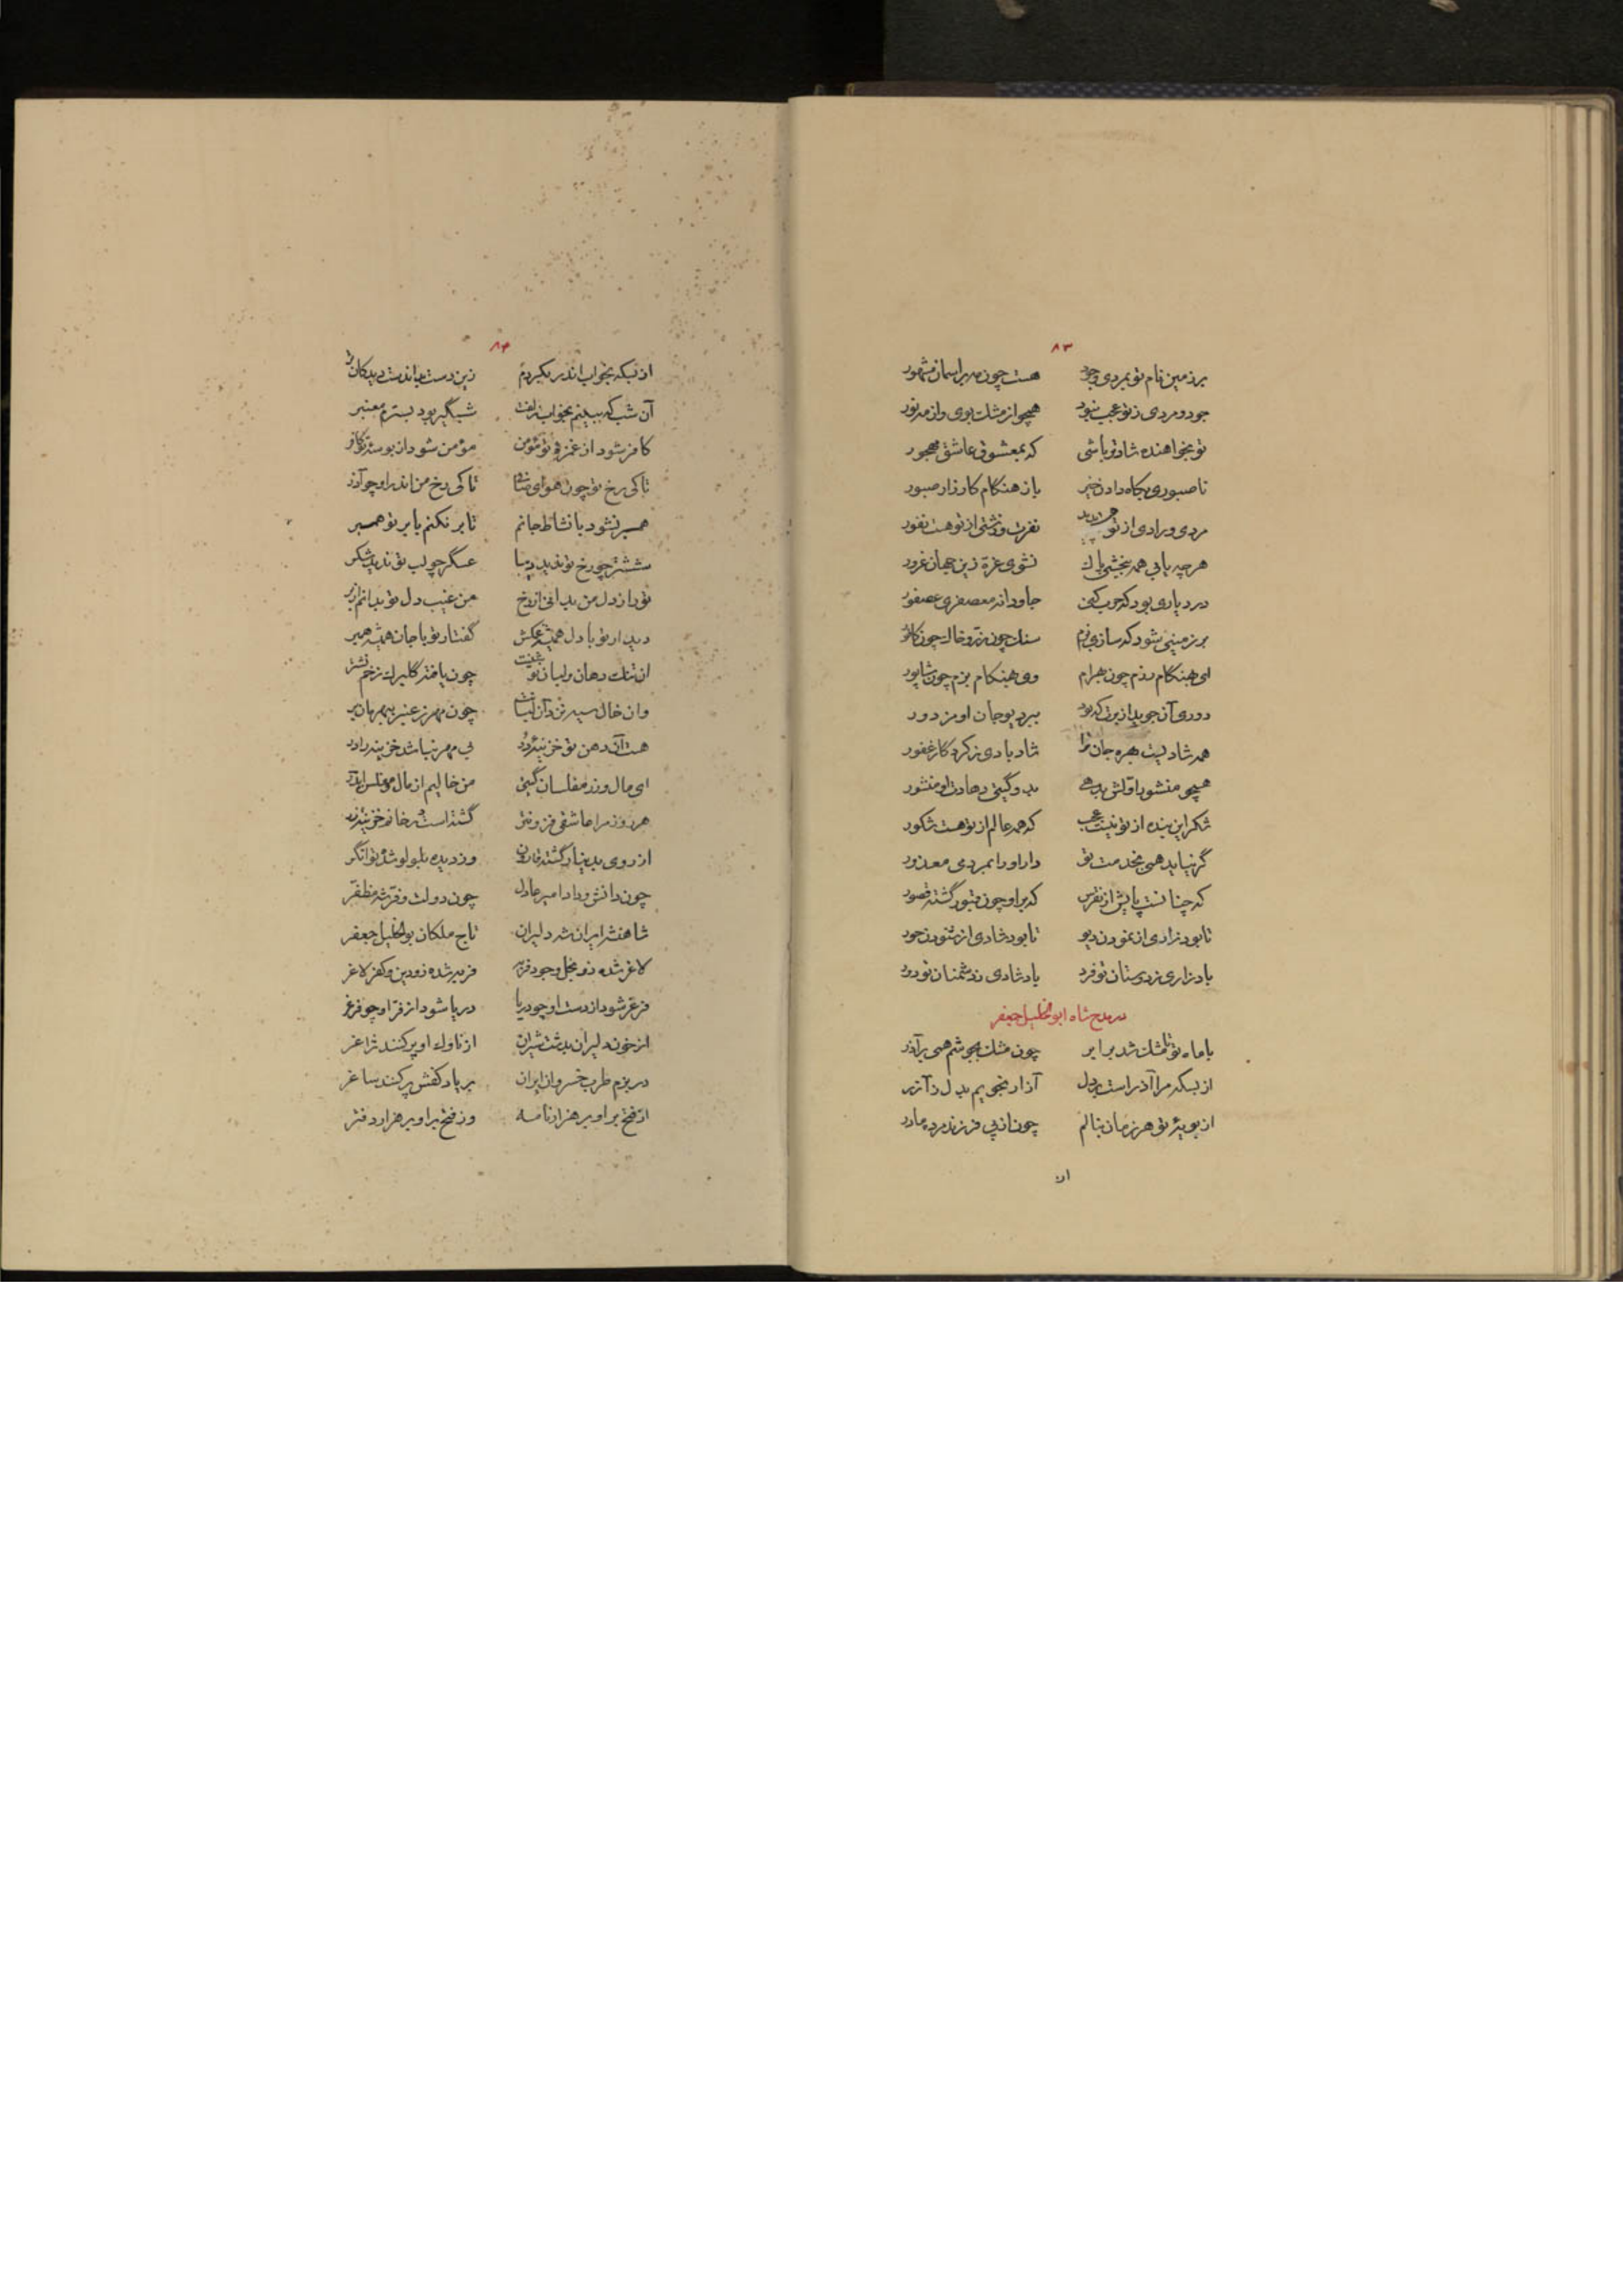 ۸۳
بر زمین نام تو بمردی وجود هست چون مه بر اسمان مشهور
جود و مردی ز تو عجب نبود همچو از مشك بوی و از مه نور
تو بخواهنده شادتر باشی که بمعشوق عاشق مهجور
ناصبوری بگاه دادن خیر باز هنگام کارزار صبور
مردی و رادی از تو نفرت و زشتی از تو هست نفور
هر چه یابی همه ببخشی پاك نشوی غرّه زین جهان غرور
درد یاری بود که حرب کنی جاودانه معصفری عصفور
بر زمینی شود که سازی بزم سنك چون درّ و خاك چون کافور
ای بهنگام رزم چون بهرام وی بهنگام بزم چون شاپور
دوری آن جوید از برت که بود ببر دیو جان او مزدور
همه شادیست بهره جان ترا شاد بادی ز کردگار غفور
همچو منشور اوّلش بدهی بدو گیتی دهاد از او منشور
شکر این بنده از تو نیست عجب که همه عالم از تو هست شکور
گر نیاید همی بخدمت تو دار او را بمردمی معذور
که چنانست پایش از نقرس که بر او چون قبور گشته قصور
تا بود زاری از نمودن دیو تا بود شادی از ستودن حور
باد زاری ز دوستان تو فرد باد شادی ز دشمنان تو دور
در مدح شاه ابوالخلیل جعفر
با ماه تو تا مشك شد برابر چون مشك بجوشم همی بر آذر
از بسکه مرا آذر است بر دل آزار نجویم بدل ز آزر
از بویهٔ تو هر زمان بنالم چونان پی فرزند مرده مادر
از
۸۴
از بسکه بخواب اندر بگیرم زین دست بدانست دیدگان تر
آن شب که ببینم بخواب زلفت شبگیر بود بسترم معنبر
کافر شود از غمزه تو مؤمن مؤمن شود از بوسهٔ تو کافر
تا کی رخ تو چون هوای نیسان تا کی رخ من اندر او چو آذر
همسر نشود با نشاط جانم تا بر نکنم با بر تو همبر
ششتر چو رخ تو ندید دیبا عسگر چو لب تو ندید شکر
تو راز دل من بدانی از رخ من غیب دل تو بدانم از بر
دیدار تو با دل همیشه عکس گفتار تو با جان همیشه همبر
آن تنك دهان و لبان تو چون یافته گلبرك زخم نشتر
وان خال سیه نزد آن لبانت چون مهر ز عنبر بمهر مهان بر
هست آن دهن تو خزینهٔ درّ بی مهر نباشد خزینه را در
ای مال و زر مفلسان گیتی من خالیم از مال و مفلس از زر
هر روز مرا عاشقی فزونتر گشته است در خانه خزینهٔ زر
از روی بدینار گشته قارون وز دیده بلولو شده توانگر
چون دانش و داد امیر عادل چون دولت و فرّ شه مظفّر
شاهنشه ایران شه دلیران تاج ملکان بوالخلیل جعفر
لاغر شده زو بخل و جود فربه فربه شده زو دین و کفر لاغر
فرغر شود از دست او چو دریا دریا شود از فرّ او چو فرغر
از خون دلیران بدشت شیران از ناوك او پر کنند ژاغر
در بزم طرب خسروان ایران بر یاد کفش پر کنند ساغر
از فتح بر او بر هزار نامه وز فتح بر او بر هزار دفتر